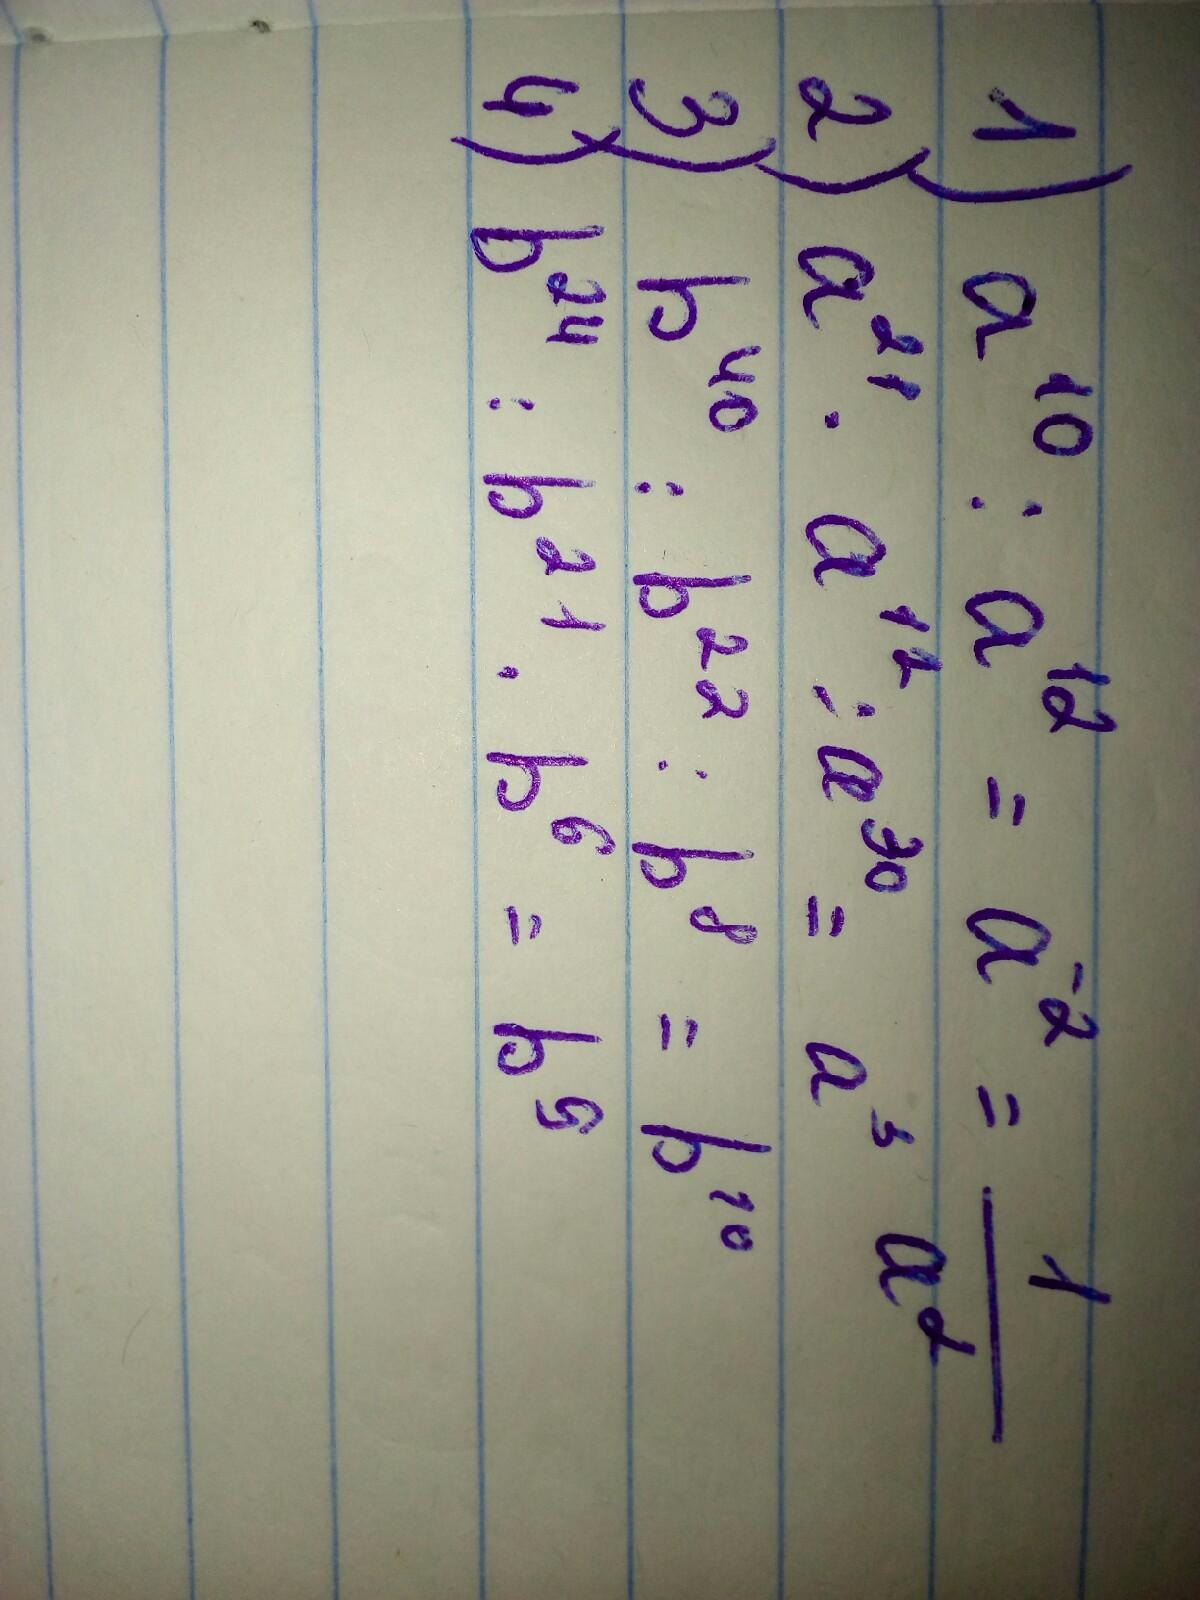 1) a¹⁰ : a¹² = a⁻² = 1/a²
2) a²¹ · a¹² : a³⁰ = a³
3) b⁴⁰ : b²² : b⁸ = b¹⁰
4) b²⁴ : b²¹ · b⁶ = b⁹